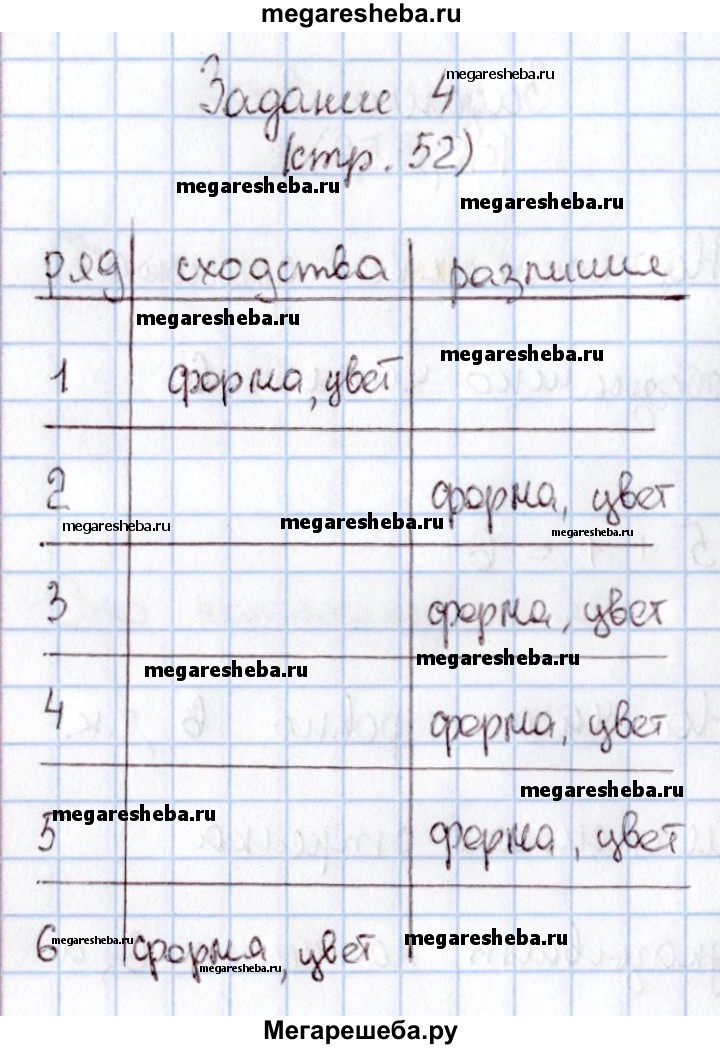 megaresheba.ru
megaresheba.ru
Задание 4
(стр. 52)
megaresheba.ru
megaresheba.ru
ряд сходства различия
megaresheba.ru
megaresheba.ru
1 форма, цвет
2 форма, цвет
megaresheba.ru megaresheba.ru megaresheba.ru
3 форма, цвет
megaresheba.ru megaresheba.ru
4 форма, цвет
megaresheba.ru
megaresheba.ru
5 форма, цвет
6 megaresheba.ru форма, цвет megaresheba.ru
megaresheba.ru
Мегарешеба.ру